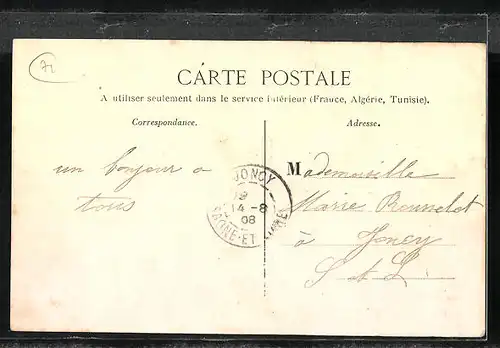 71
CARTE POSTALE
A utiliser seulement dans le service intérieur (France, Algérie, Tunisie).
Correspondance.
Adresse.
un bonjour a
tous
JONCY
14-8
08
SAONE-ET-LOIRE
Mademoiselle
Marie
à Joncy
S et L.